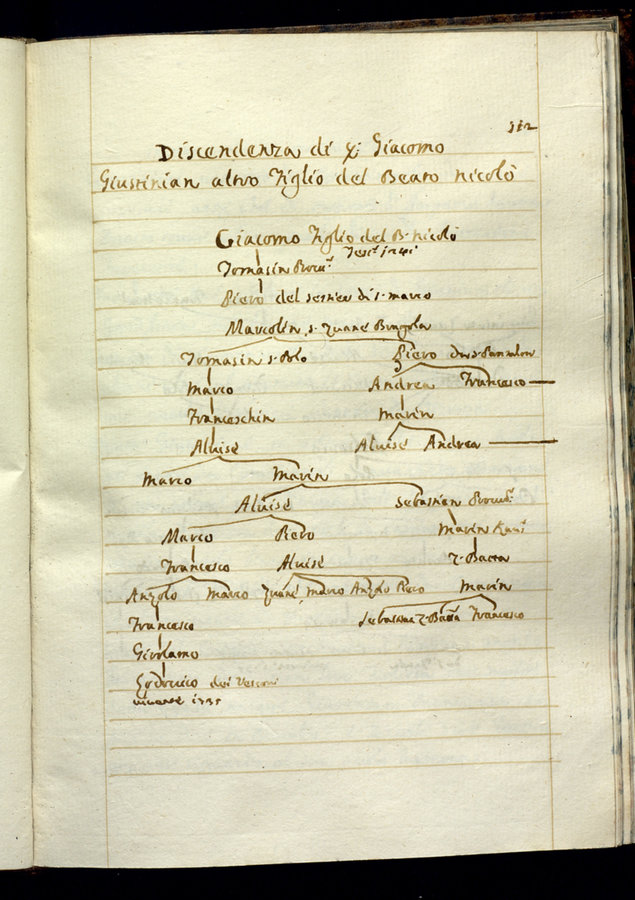 Discendenza di q: Giacomo
Giustinian altro Figlio del Beato Nicolò
Giacomo Figlio del B. Nicolò
Tomasin Procu.r
Piero del sestier di S. Marco
Marcolin, S. Zuane Bragola
Tomasin S. Polo Piero da S. Pantalon
Marco Andrea Francesco
Franceschin Marin
Aluise Aluise Andrea
Marco Marin
Aluise Sebastian Procu.r
Marco Piero Marin Kav.r
Francesco Aluise Z. Batta
Anzolo Marco Zuane Marco Anzolo Piero Marin
Francesco Sebastian Z. Batta Francesco
Girolamo
Lodovico dei Vescovi
vivente 1735